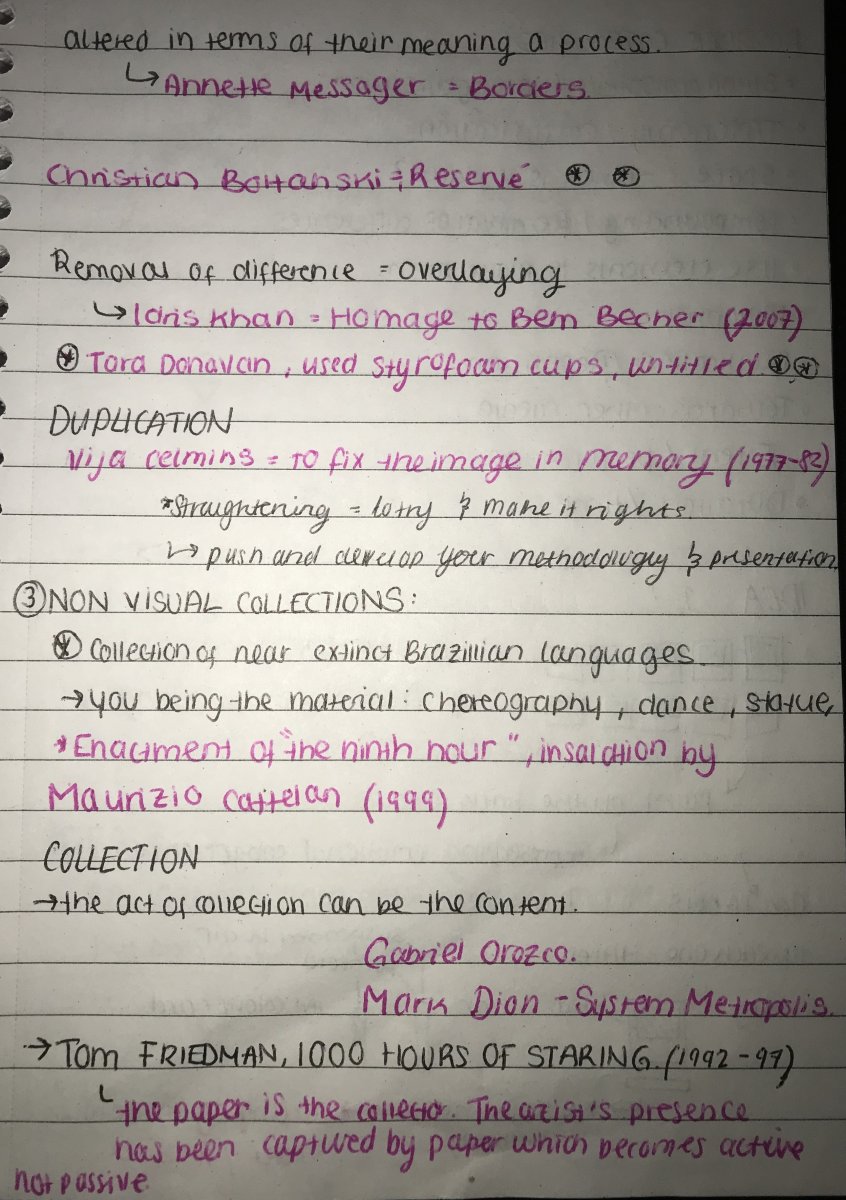 altered in terms of their meaning a process.
↳ Annette Messager = Borders
Christian Boltanski = Reserve ⊛ ⊛
Removal of difference = overlaying
↳ Idris Khan = Homage to Bern Becher (2007)
⊛ Tara Donavan, used styrofoam cups, untitled. ⊛⊛
DUPLICATION
Vija celmins = TO fix the image in memory (1977-82)
*Straughtening = to try & make it rights.
↳ push and develop your methodolugy & presentation.
③ NON VISUAL COLLECTIONS:
⊛ Collection of near extinct Brazillian languages.
→ you being the material: Chereography, dance, statue,
* Enactment of "the ninth hour", insalation by
Maurizio Cattelan (1999)
COLLECTION
→ the act of collection can be the content.
Gabriel Orozco.
Mark Dion - System Metropolis.
→ Tom FRIEDMAN, 1000 HOURS OF STARING. (1992-97)
↳ the paper is the collector. The atist's presence
has been captured by paper which becomes active
not passive